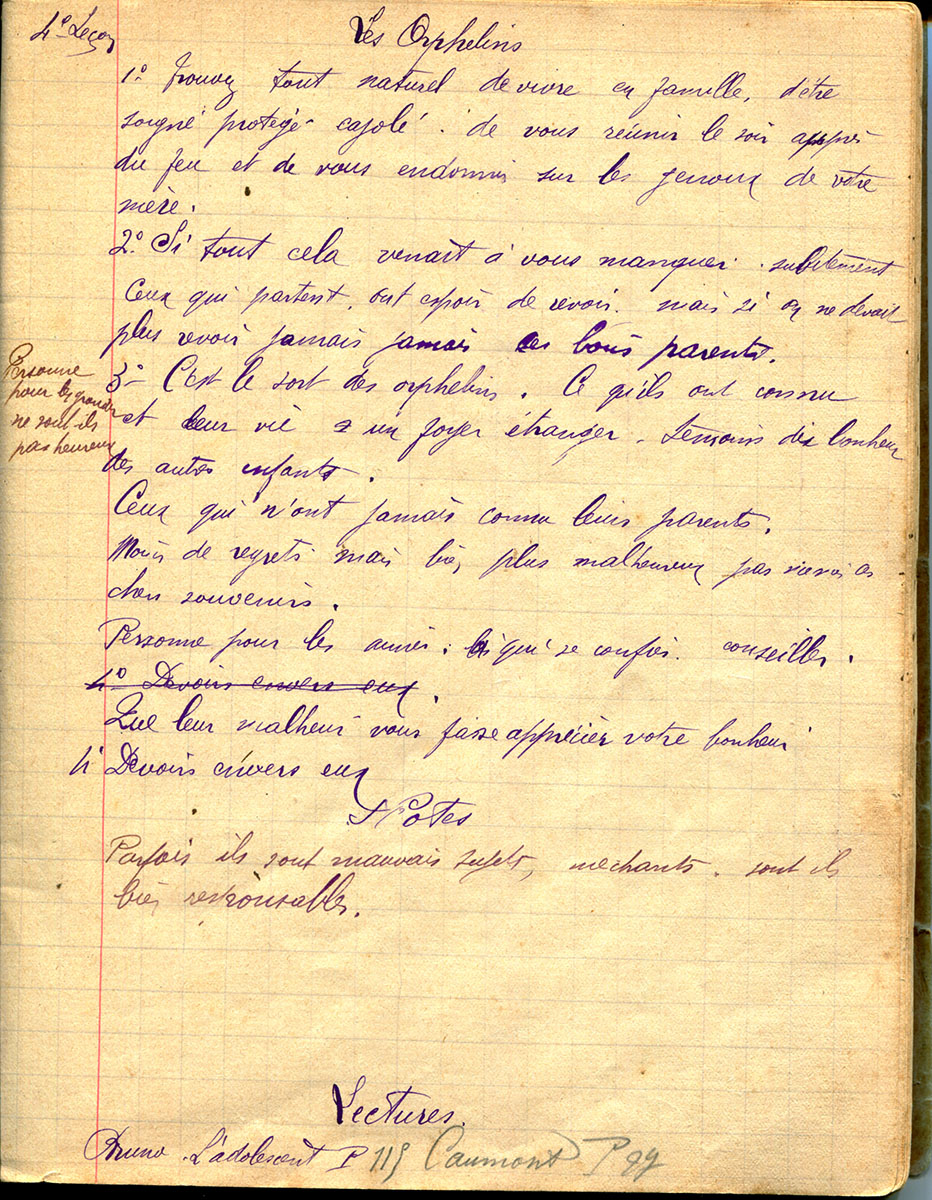 4e Leçon
Les Orphelins
1° Trouvez tout naturel de vivre en famille, d'être
soigné protégé cajolé. de vous réunir le soir auprès
du feu et de vous endormir sur les genoux de votre
mère.
2° Si tout cela venait à vous manquer. subitement
Ceux qui partent, ont espoir de revoir. mais si on ne devait
plus revoir jamais jamais ces bons parents.
3° C'est le sort des orphelins. Ce qu'ils ont connu
et leur vie un foyer étranger. Témoins du bonheur
des autres enfants.
Personne
pour les gronder
ne sont-ils
pas heureux
Ceux qui n'ont jamais connu leurs parents.
Moins de regrets mais bien plus malheureux pas même ces
chers souvenirs.
Personne pour les aimer. à qui se confier. conseiller.
4° Devoirs envers eux.
Que leur malheur vous fasse apprécier votre bonheur
4° Devoirs envers eux
Notes
Parfois ils sont mauvais sujets, méchants. sont ils
bien responsables.
Lectures.
Bruno. L'adolescent P 115 Caumont P 99